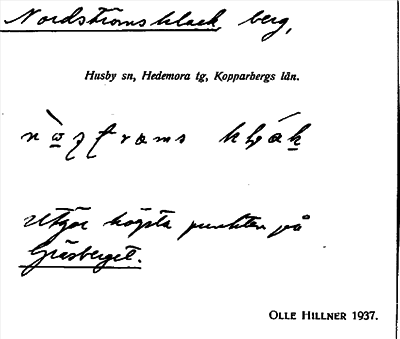 Nordströmsklack berg,
Husby sn, Hedemora tg, Kopparbergs län.
Utgör högsta punkten på
Gräsberget.
OLLE HILLNER 1937.